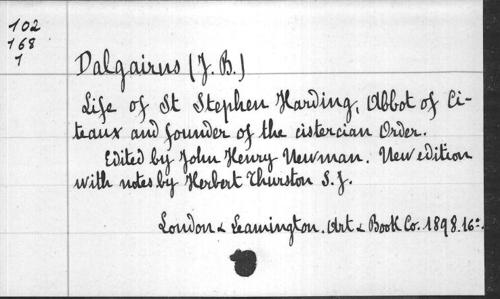 102
168
1
Dalgairns (J. B.)
Life of St Stephen Harding, Abbot of Ci-
teaux and founder of the cistercian Order.
Edited by John Henry Newman. New edition
with notes by Herbert Thurston S. J.
London & Leamington. Art & Book Co. 1898. 16º.